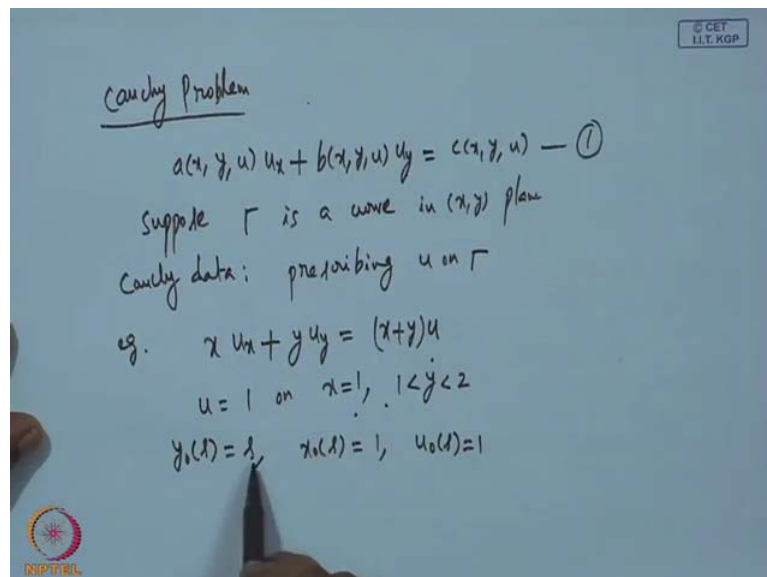 © CET
I.I.T. KGP
Cauchy Problem
a(x, y, u) ux + b(x, y, u) uy = c(x, y, u) — ①
Suppose Γ is a curve in (x, y) plane
Cauchy data: prescribing u on Γ
eg. x ux + y uy = (x+y)u
u = 1 on x=1, 1<y<2
y₀(s) = s, x₀(s) = 1, u₀(s)=1
NPTEL